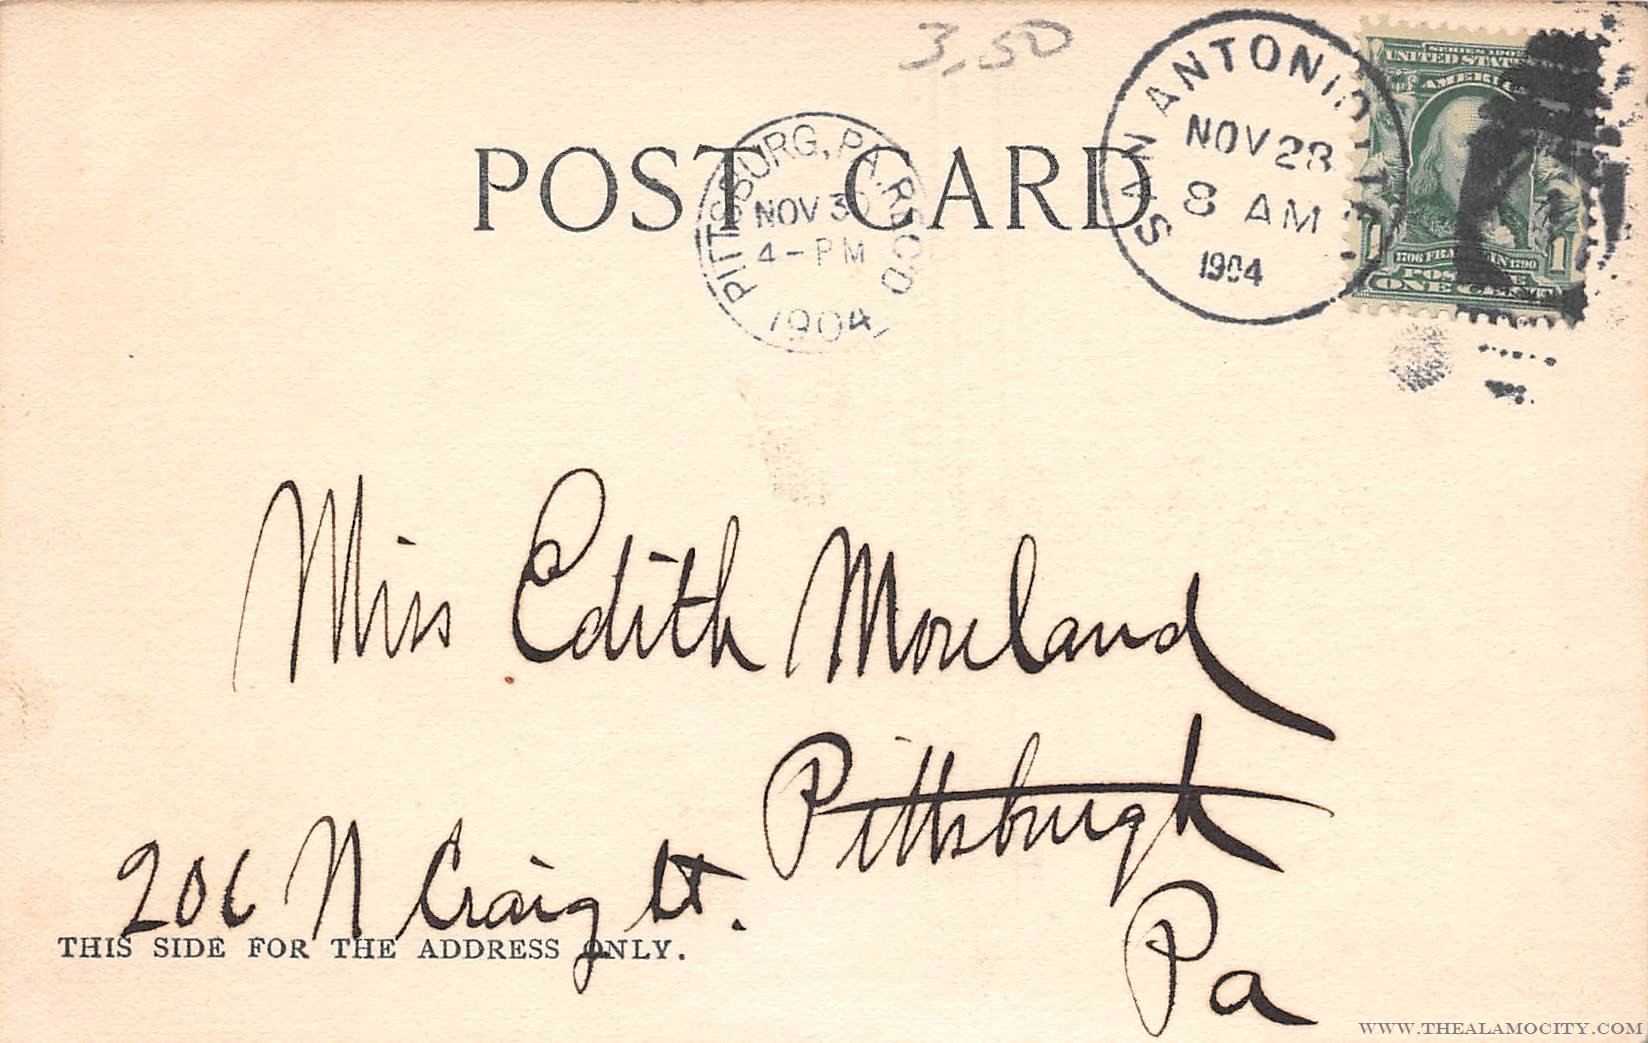 3.50
SAN ANTONIO, TEX.
NOV 28
8 AM
1904
SERIES 1902
UNITED STATES
AMERICA
1706 FRANKLIN 1790
1 POSTAGE 1
ONE CENT
POST CARD
PITTSBURG, PA. REC'D
NOV 30
4-PM
1904
Miss Edith Moreland
Pittsburgh
206 N Craig St.
Pa
THIS SIDE FOR THE ADDRESS ONLY.
WWW.THEALAMOCITY.COM